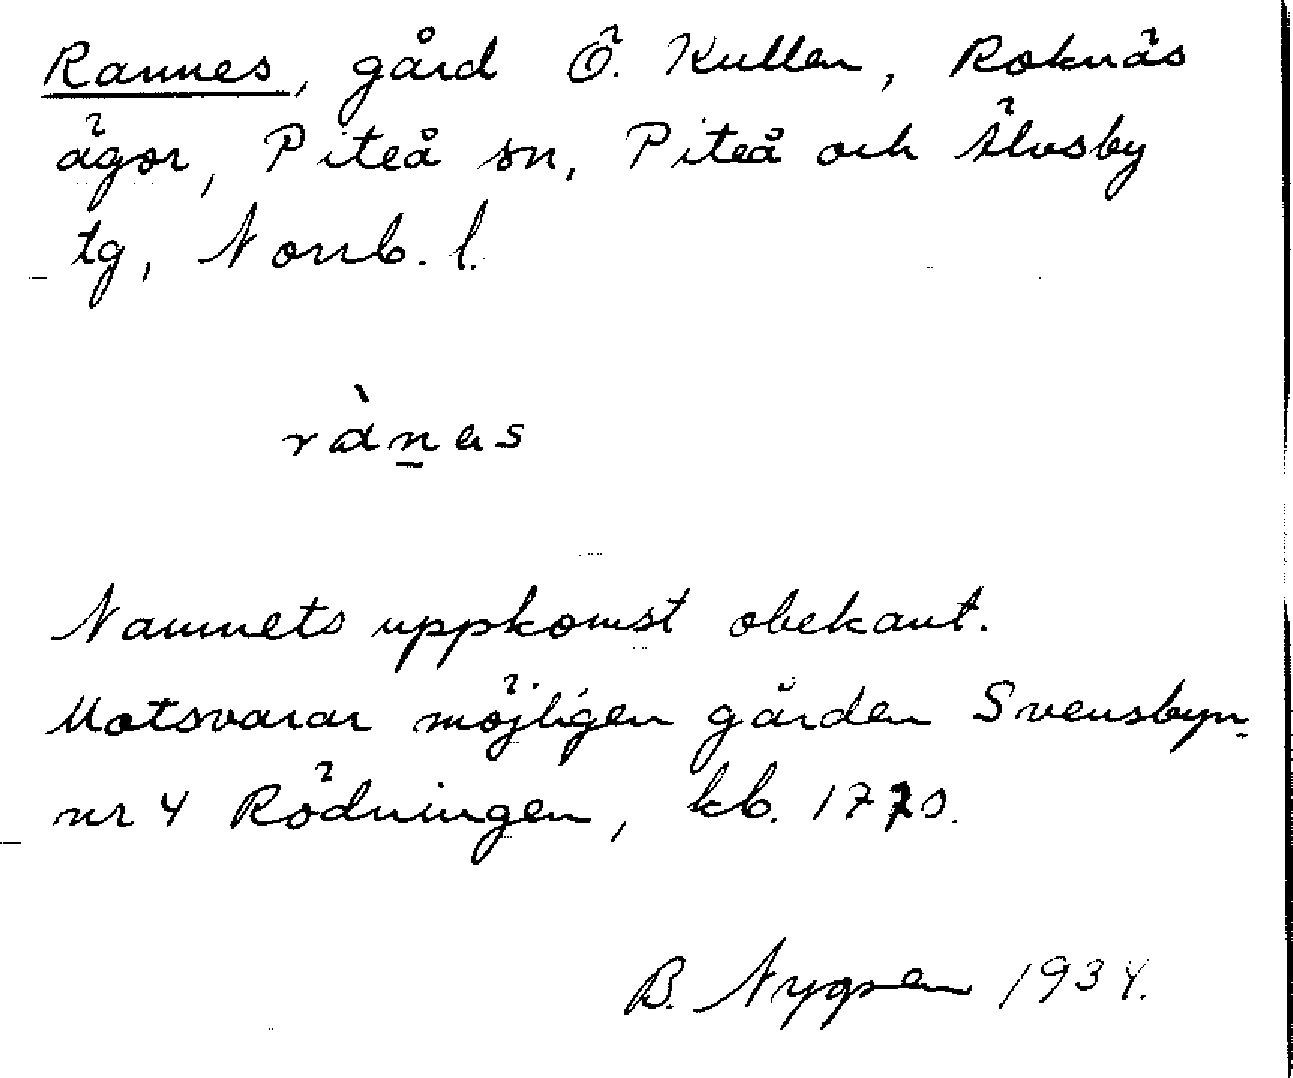 Rannes, gård Ö. Kullen, Roknäs
ägor, Piteå sn, Piteå och Älvsby
tg, Norrb. l.
rànas
Namnets uppkomst obekant.
Motsvarar möjligen gården Svensbyn
nr 4 Rödningen, kb. 1770.
B. Nygren 1934.